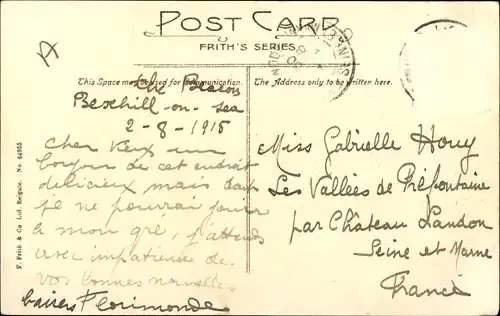 POST CARD
FRITH'S SERIES.
This Space may be used for Communication.
The Address only to be written here.
The Beacon
Bexhill-on-sea
2-8-1915
Cher Vieux un
bonjour de cet endroit
délicieux mais dont
je ne pourrai jouir
à mon gré, j'attends
avec impatience de
vos bonnes nouvelles
baisers Florimonde
Miss Gabrielle Houy
Les Vallées de Préfontaine
par Château Landon
Seine et Marne
France
F. Frith & Co Ltd. Reigate. No. 64955